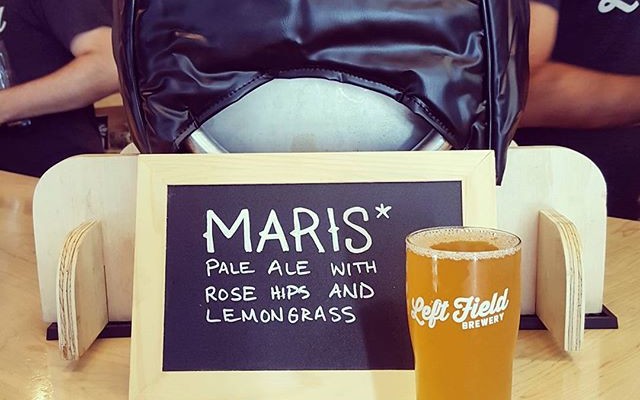 MARIS*
PALE ALE WITH
ROSE HIPS AND
LEMONGRASS
Left Field
BREWERY